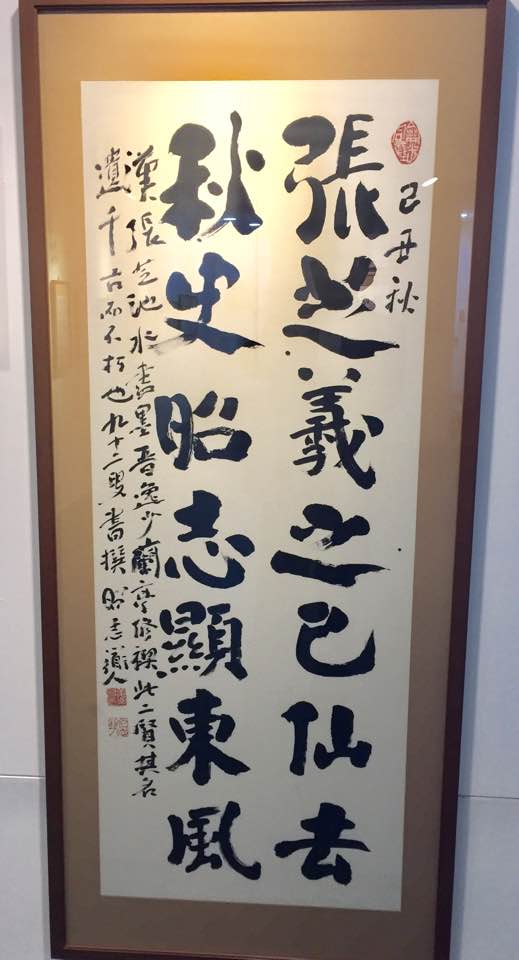 己丑秋
張芝羲之已仙去
秋史昭志顯東風
漢張芝池水盡墨晉逸少蘭亭修禊此二賢其名
遺千古而不朽也九十二叟書撰昭志道人